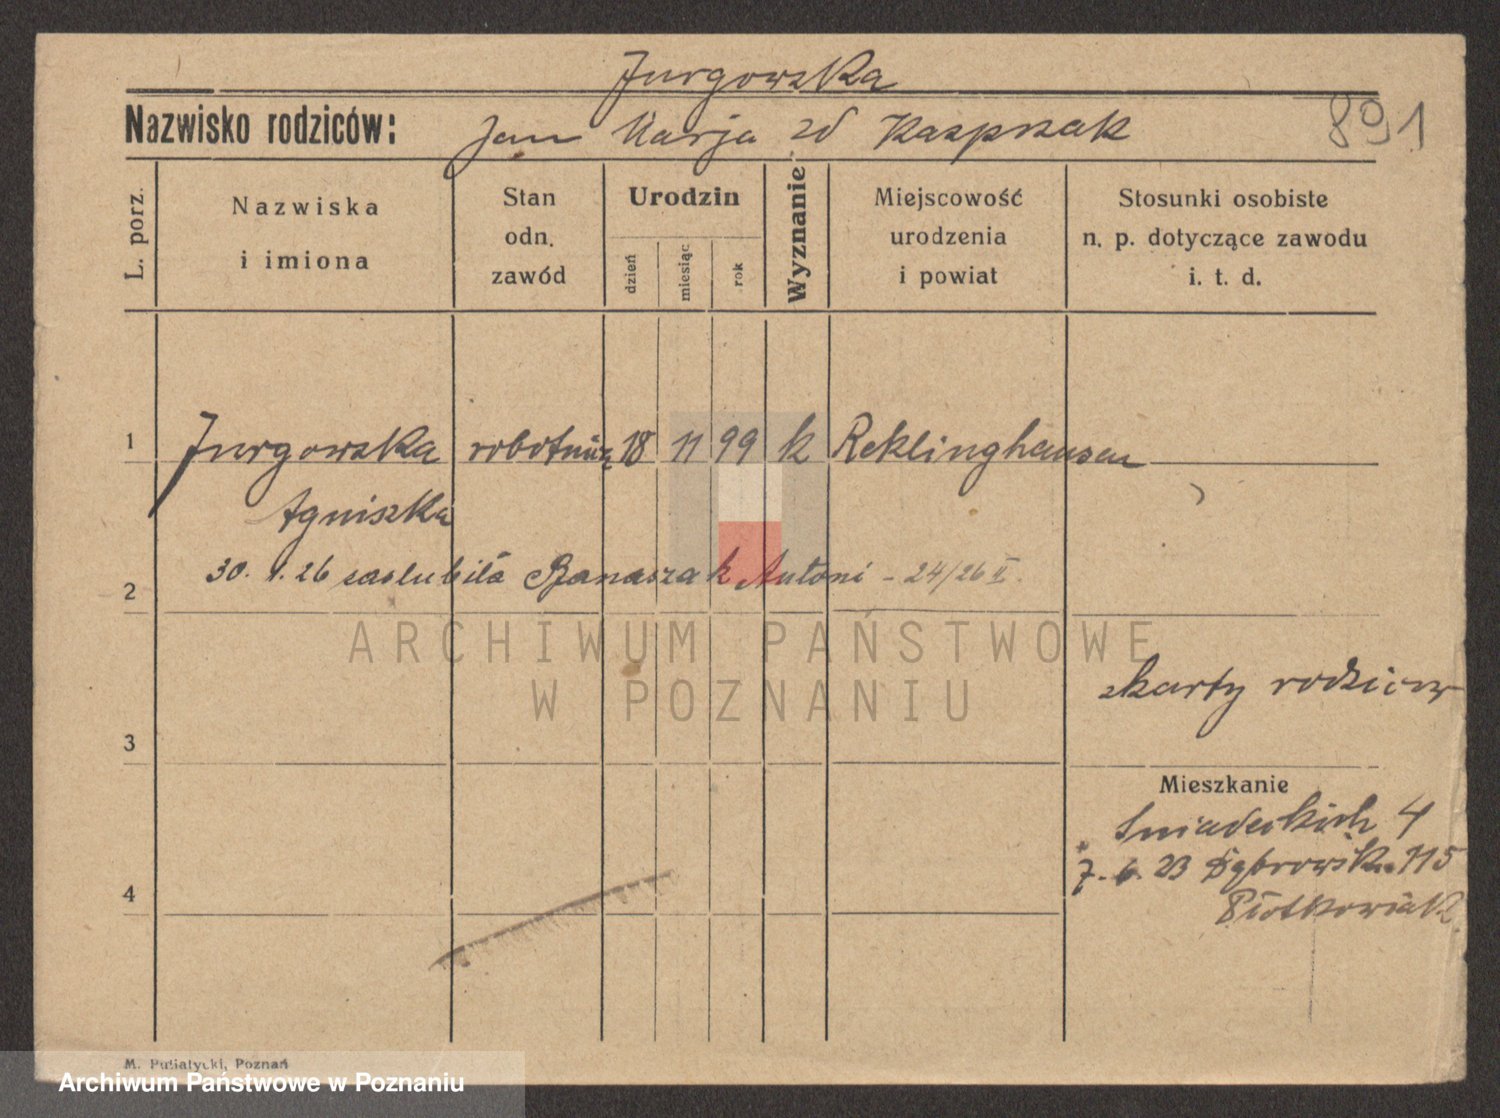 Jurgowska
Nazwisko rodziców: Jan Marja zd Kasprzak
891
L. porz.
Nazwiska
i imiona
Stan
odn.
zawód
Urodzin
dzień
miesiąc
rok
Wyznanie
Miejscowość
urodzenia
i powiat
Stosunki osobiste
n. p. dotyczące zawodu
i. t. d.
1 Jurgowska robotnica 18 11 99 k Reklinghausen
Agniszka
30. 1. 26 zaslubiła Banaszak Antoni - 24/26 II.
2
ARCHIWUM PAŃSTWOWE
W POZNANIU
zkarty rodziców
3
Mieszkanie
Sniadeckich 4
7. 6. 23 Dąbrowsk. 115
Piotkowiak
4
M. Pusiatycki, Poznań
Archiwum Państwowe w Poznaniu